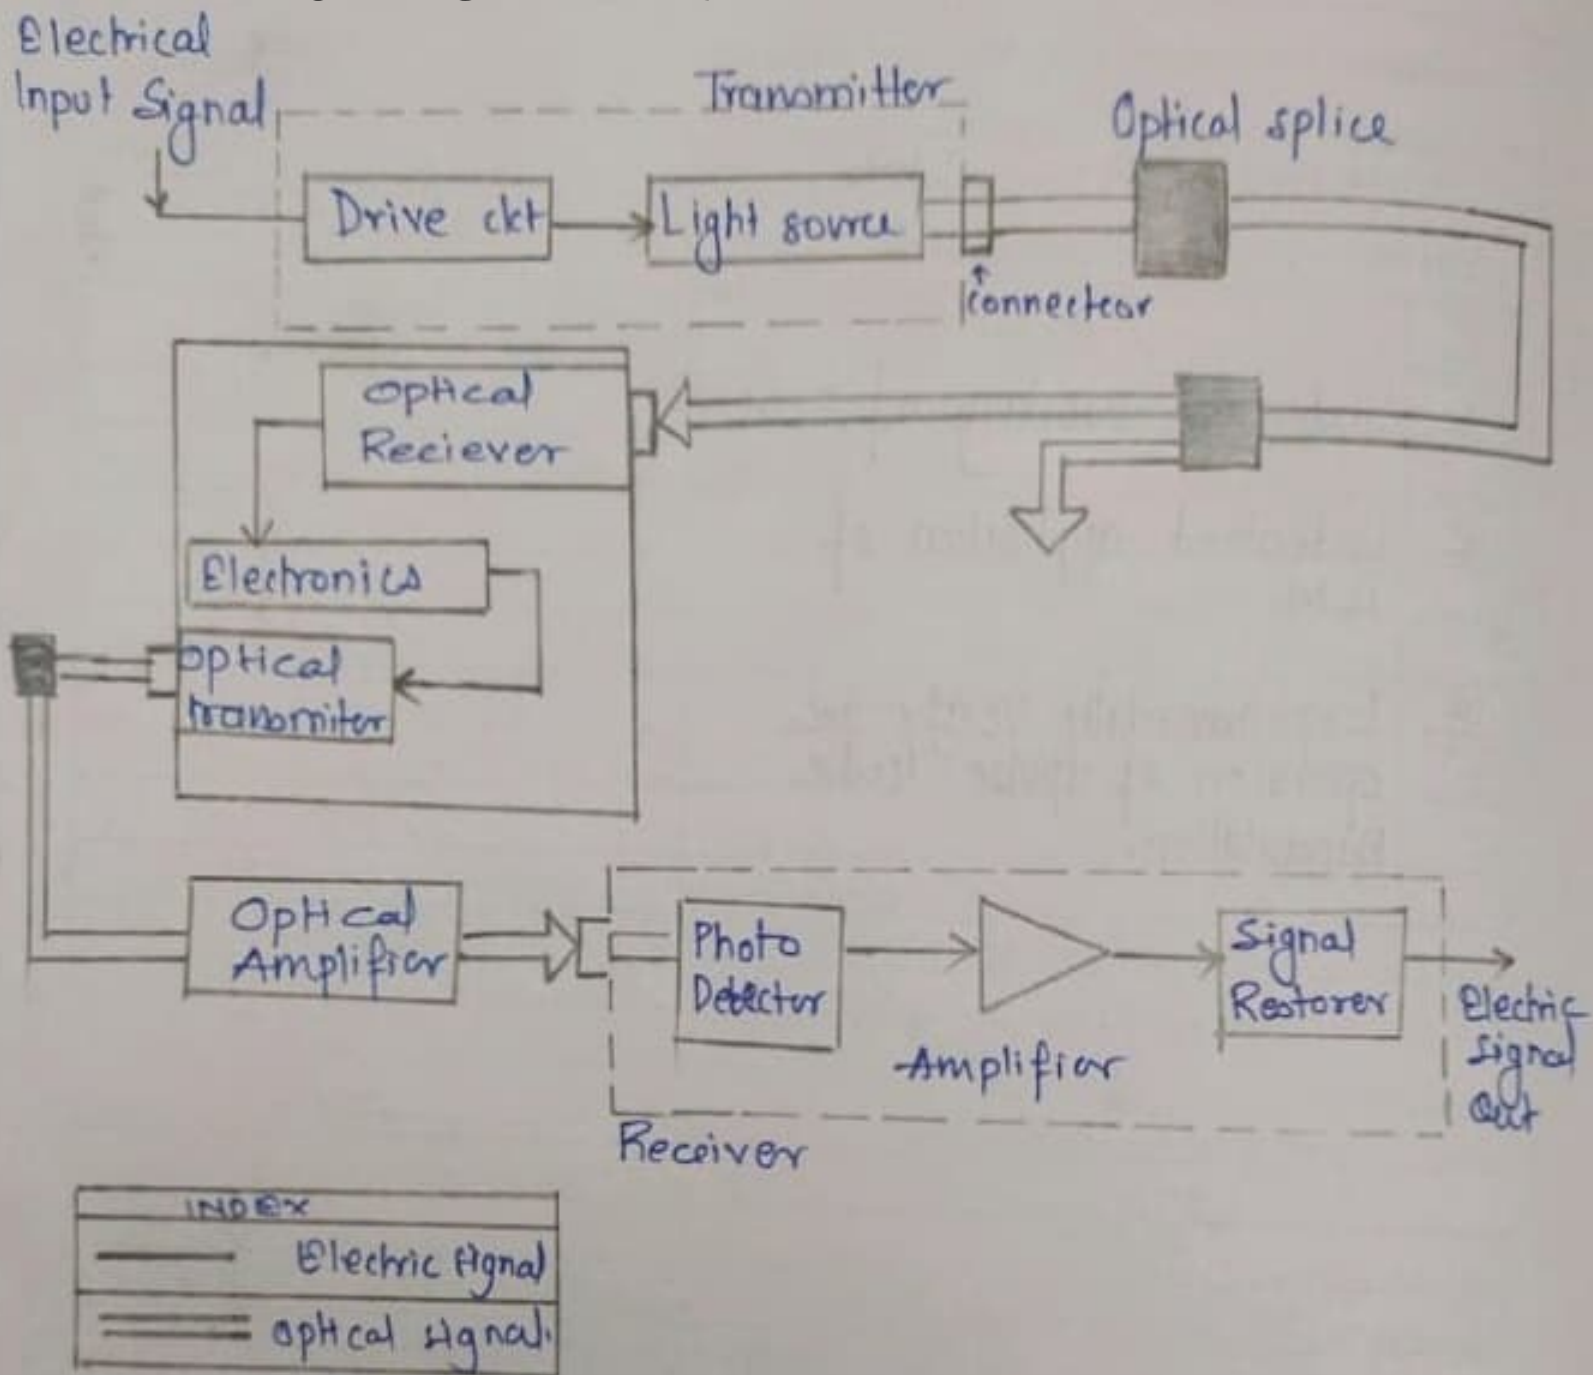 Electrical
Input Signal
Transmitter
Optical splice
Drive ckt
Light source
Connecteor
Optical
Reciever
Electronics
optical
transmiter
Optical
Amplifier
Photo
Detector
Amplifier
Signal
Restorer
Electric
Signal
Out
Receiver
INDEX
Electric signal
optical signal.